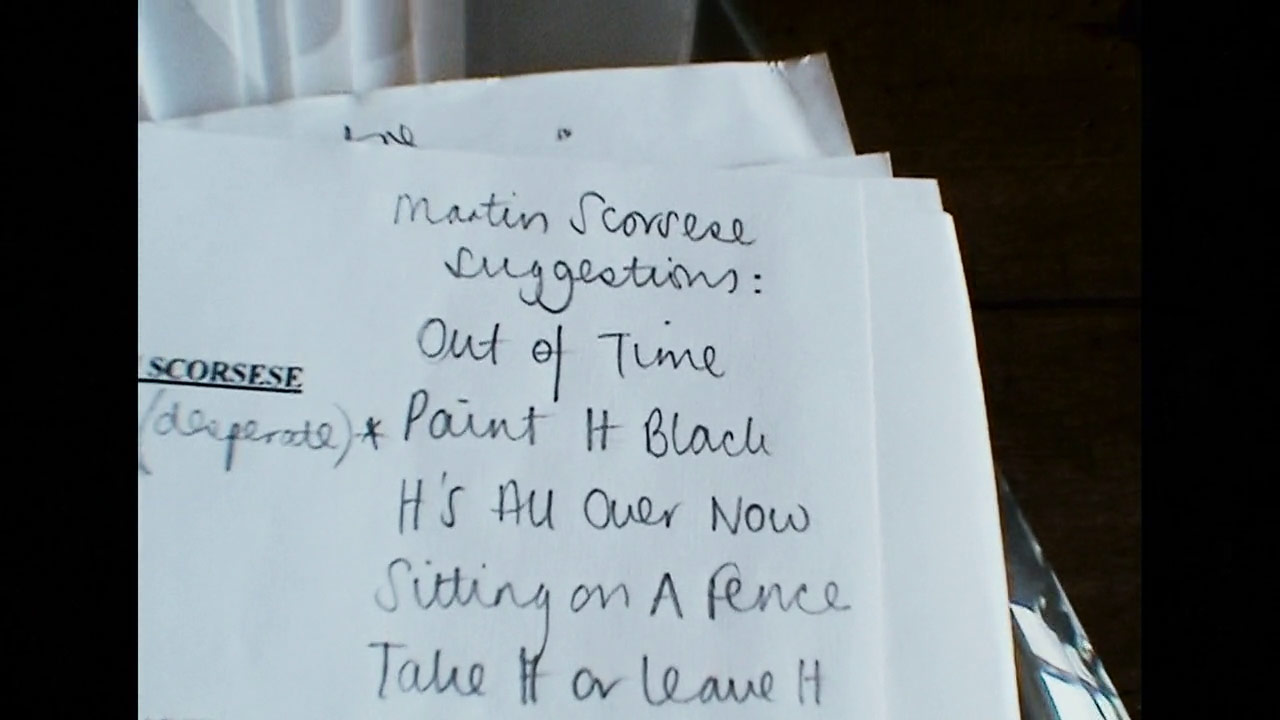 Martin Scorsese
suggestions:
Out of Time
SCORSESE
(desperate) * Paint It Black
It's All Over Now
Sitting on A Fence
Take It or Leave It